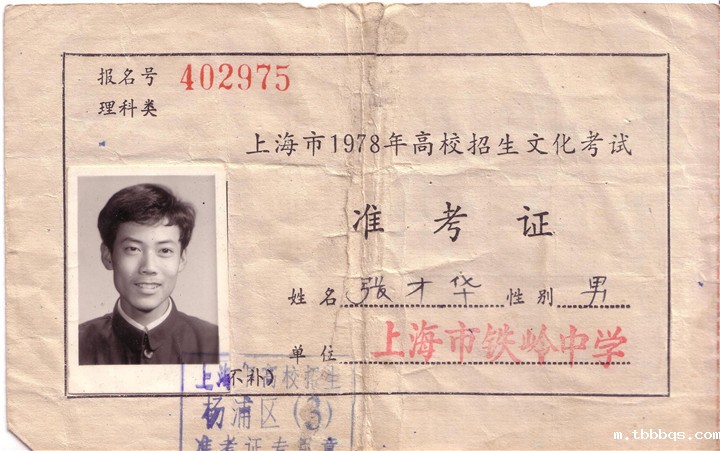 报名号 402975
理科类
上海市1978年高校招生文化考试
准考证
姓名 张才华 性别 男
单位 上海市铁岭中学
上海 高校招生
不补
杨浦区(3)
准考证专用章
m.tbbbqs.com